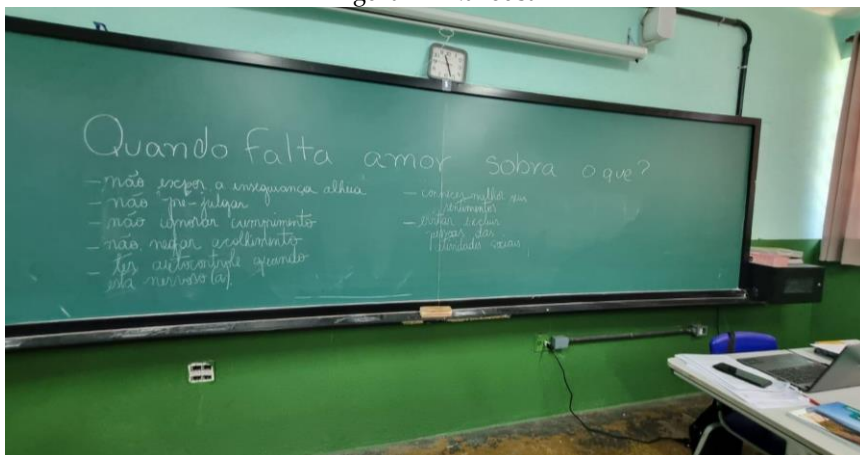 Quando falta amor sobra o que?
- não expor a insegurança alheia
- não pré-julgar
- não ignorar cumprimento
- não negar acolhimento
- ter autocontrole quando
está nervoso (a).
- conhecer melhor seus
sentimentos
- evitar excluir
pessoas das
atividades sociais